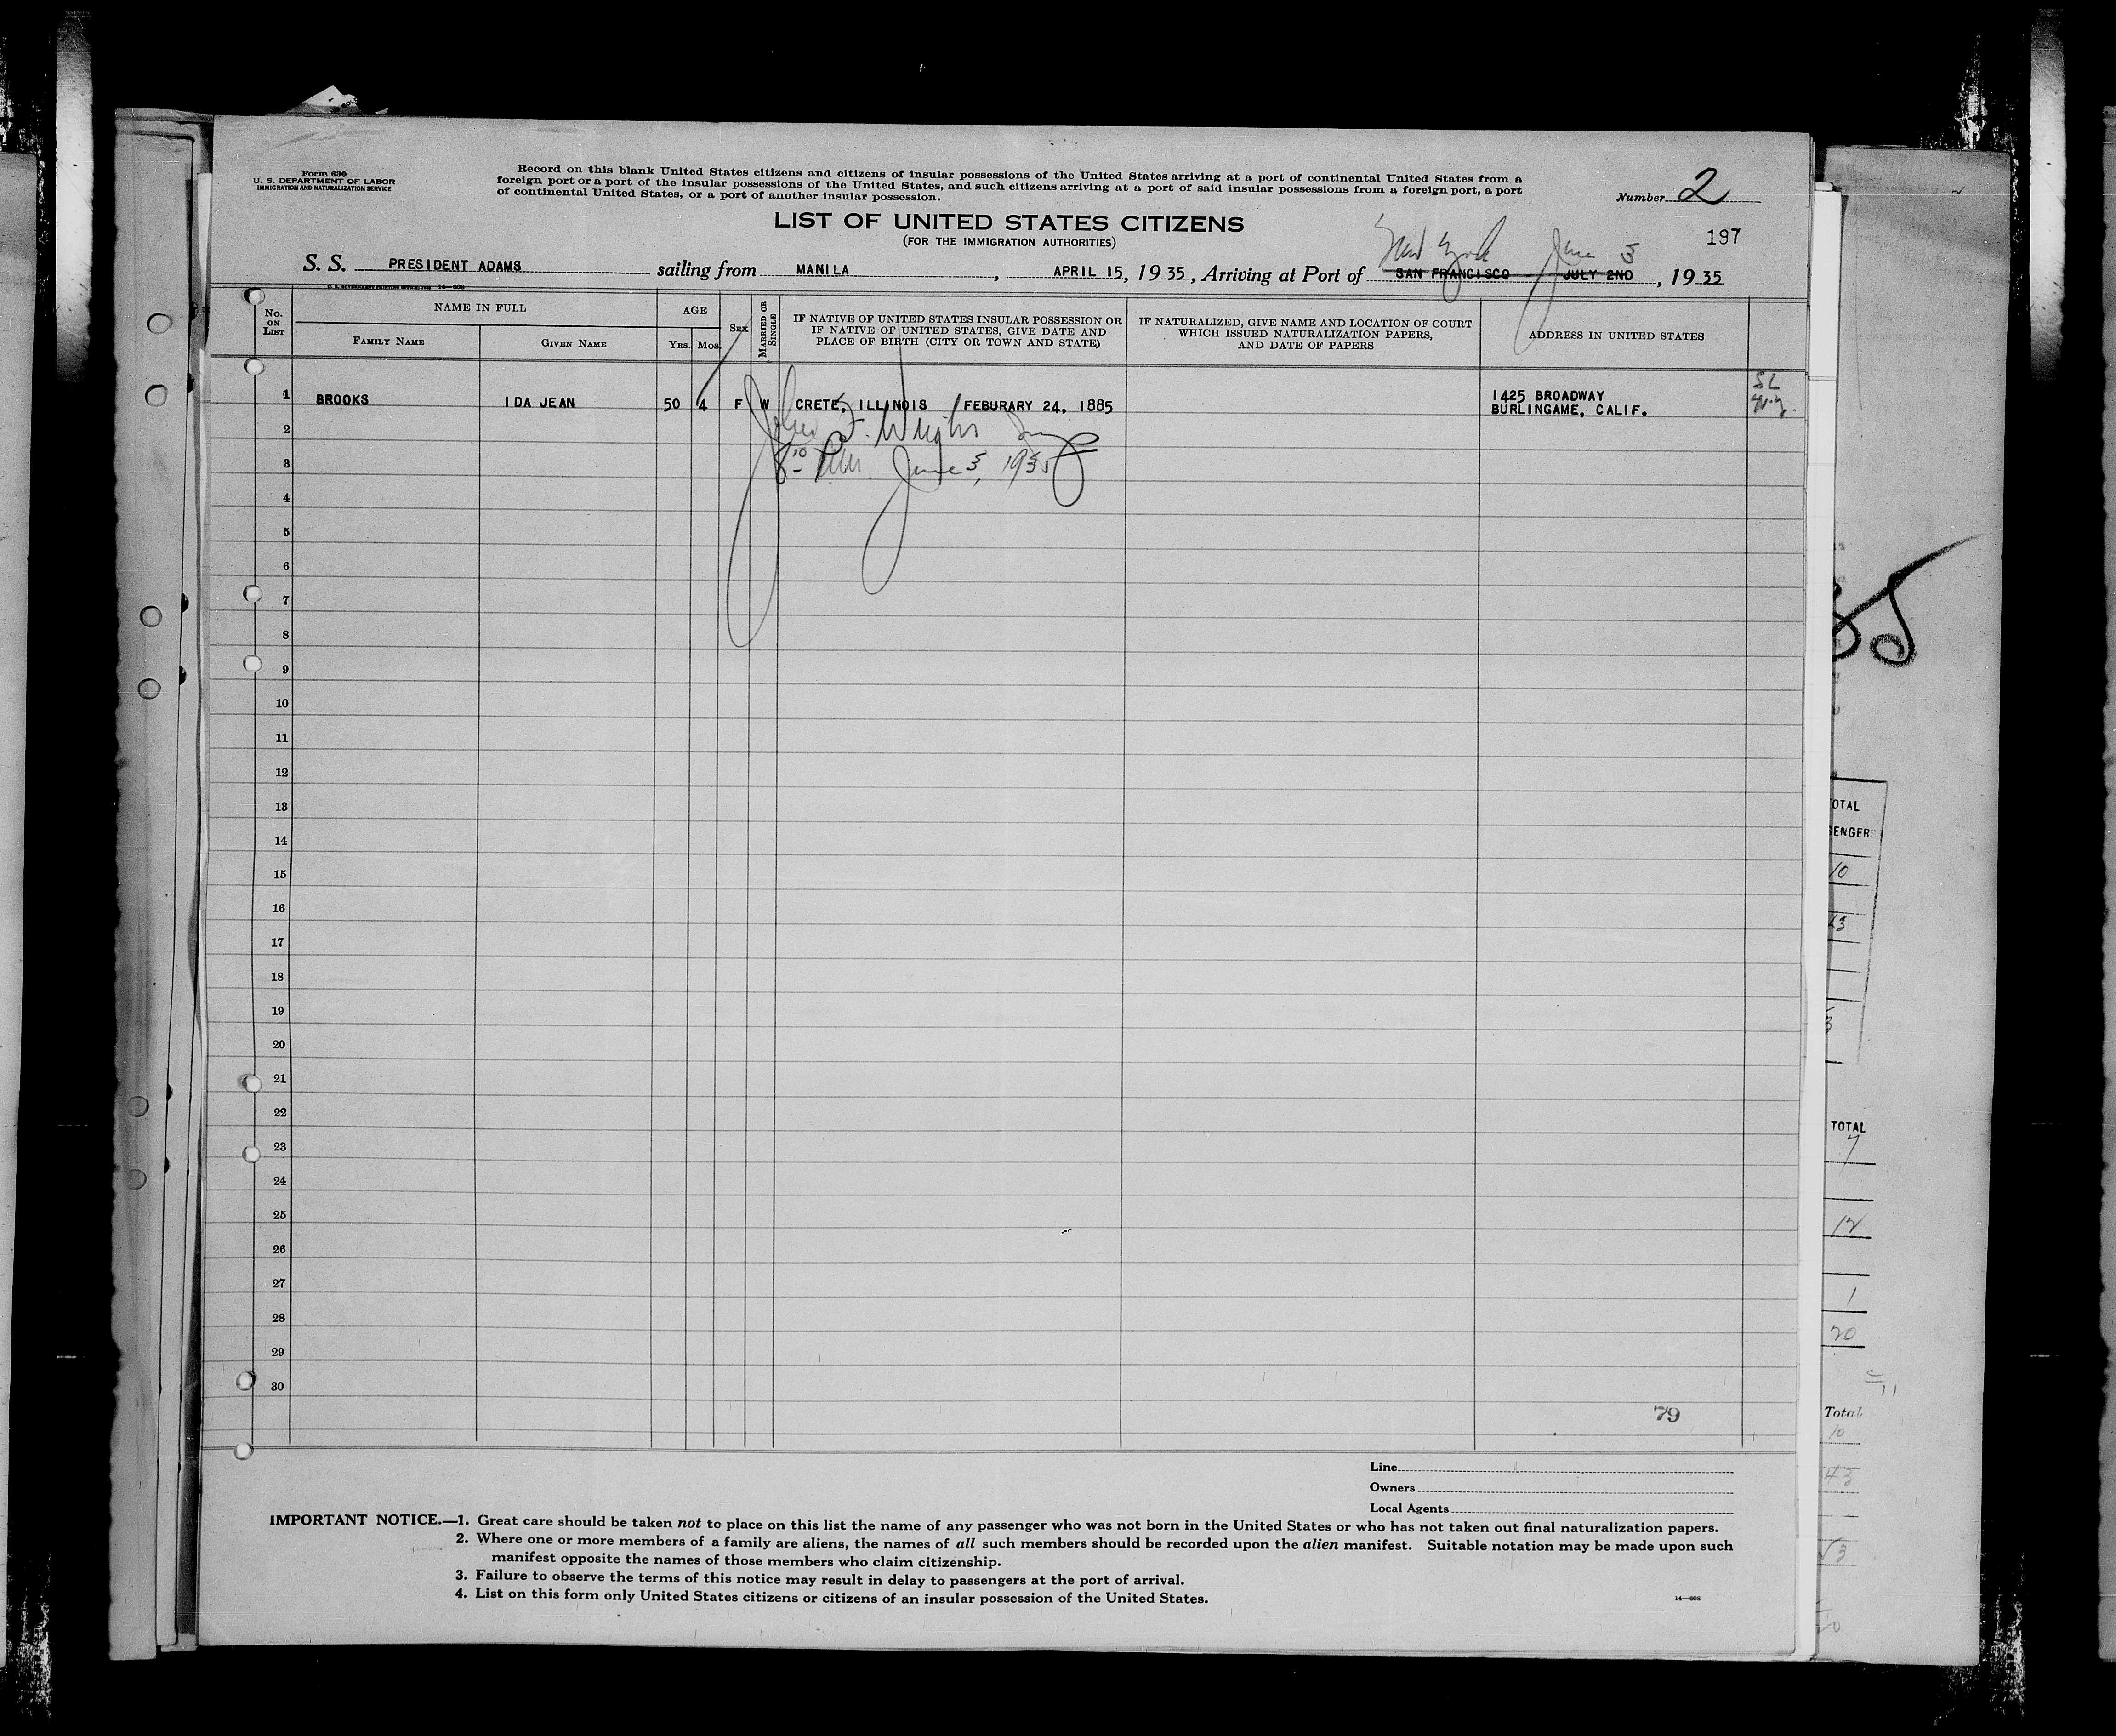 Form 630
U. S. DEPARTMENT OF LABOR
IMMIGRATION AND NATURALIZATION SERVICE
Record on this blank United States citizens and citizens of insular possessions of the United States arriving at a port of continental United States from a
foreign port or a port of the insular possessions of the United States, and such citizens arriving at a port of said insular possessions from a foreign port, a port
of continental United States, or a port of another insular possession.
Number 2
LIST OF UNITED STATES CITIZENS
(FOR THE IMMIGRATION AUTHORITIES)
197
New York June 3
S. S. PRESIDENT ADAMS sailing from MANILA, APRIL 15, 1935, Arriving at Port of SAN FRANCISCO JULY 2ND, 1935
No. ON LIST
NAME IN FULL
FAMILY NAME
GIVEN NAME
AGE
Yrs. Mos.
SEX
MARRIED OR SINGLE
IF NATIVE OF UNITED STATES INSULAR POSSESSION OR
IF NATIVE OF UNITED STATES, GIVE DATE AND
PLACE OF BIRTH (CITY OR TOWN AND STATE)
IF NATURALIZED, GIVE NAME AND LOCATION OF COURT
WHICH ISSUED NATURALIZATION PAPERS,
AND DATE OF PAPERS
ADDRESS IN UNITED STATES
1 BROOKS IDA JEAN 50 4 F W CRETE, ILLINOIS FEBURARY 24, 1885 1425 BROADWAY
BURLINGAME, CALIF.
SL
N.Y.
John F. Wright
8 10 PM. June 3, 1935
2
3
4
5
6
7
8
9
10
11
12
13
14
15
16
17
18
19
20
21
22
23
24
25
26
27
28
29
30
79
Line
Owners
Local Agents
IMPORTANT NOTICE.—1. Great care should be taken not to place on this list the name of any passenger who was not born in the United States or who has not taken out final naturalization papers.
2. Where one or more members of a family are aliens, the names of all such members should be recorded upon the alien manifest. Suitable notation may be made upon such
manifest opposite the names of those members who claim citizenship.
3. Failure to observe the terms of this notice may result in delay to passengers at the port of arrival.
4. List on this form only United States citizens or citizens of an insular possession of the United States.
14—608
OTAL
ENGERS
10
TOTAL
7
12
1
20
11
Total
10
43